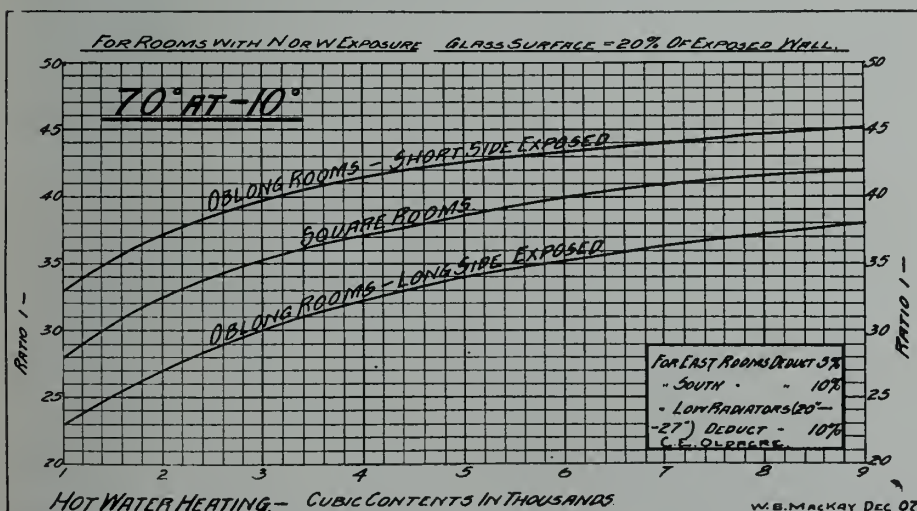 FOR ROOMS WITH N OR W EXPOSURE GLASS SURFACE = 20% OF EXPOSED WALL.
70° AT -10°
OBLONG ROOMS - SHORT SIDE EXPOSED
SQUARE ROOMS.
OBLONG ROOMS - LONG SIDE EXPOSED
50
45
40
35
30
25
20
RATIO 1 -
50
45
40
35
30
25
20
RATIO 1 -
FOR EAST ROOMS DEDUCT 5%
" SOUTH " " 10%
" LOW RADIATORS (20"-
-27") DEDUCT - 10%
C.E. OLDACRE.
1 2 3 4 5 6 7 8 9
HOT WATER HEATING - CUBIC CONTENTS IN THOUSANDS
W.B. MACKAY DEC 07